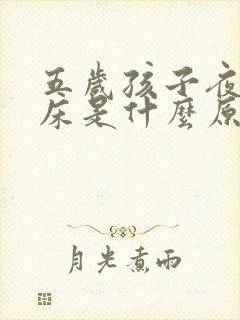 五歲孩子夜
床是什麼原
月光煮雨